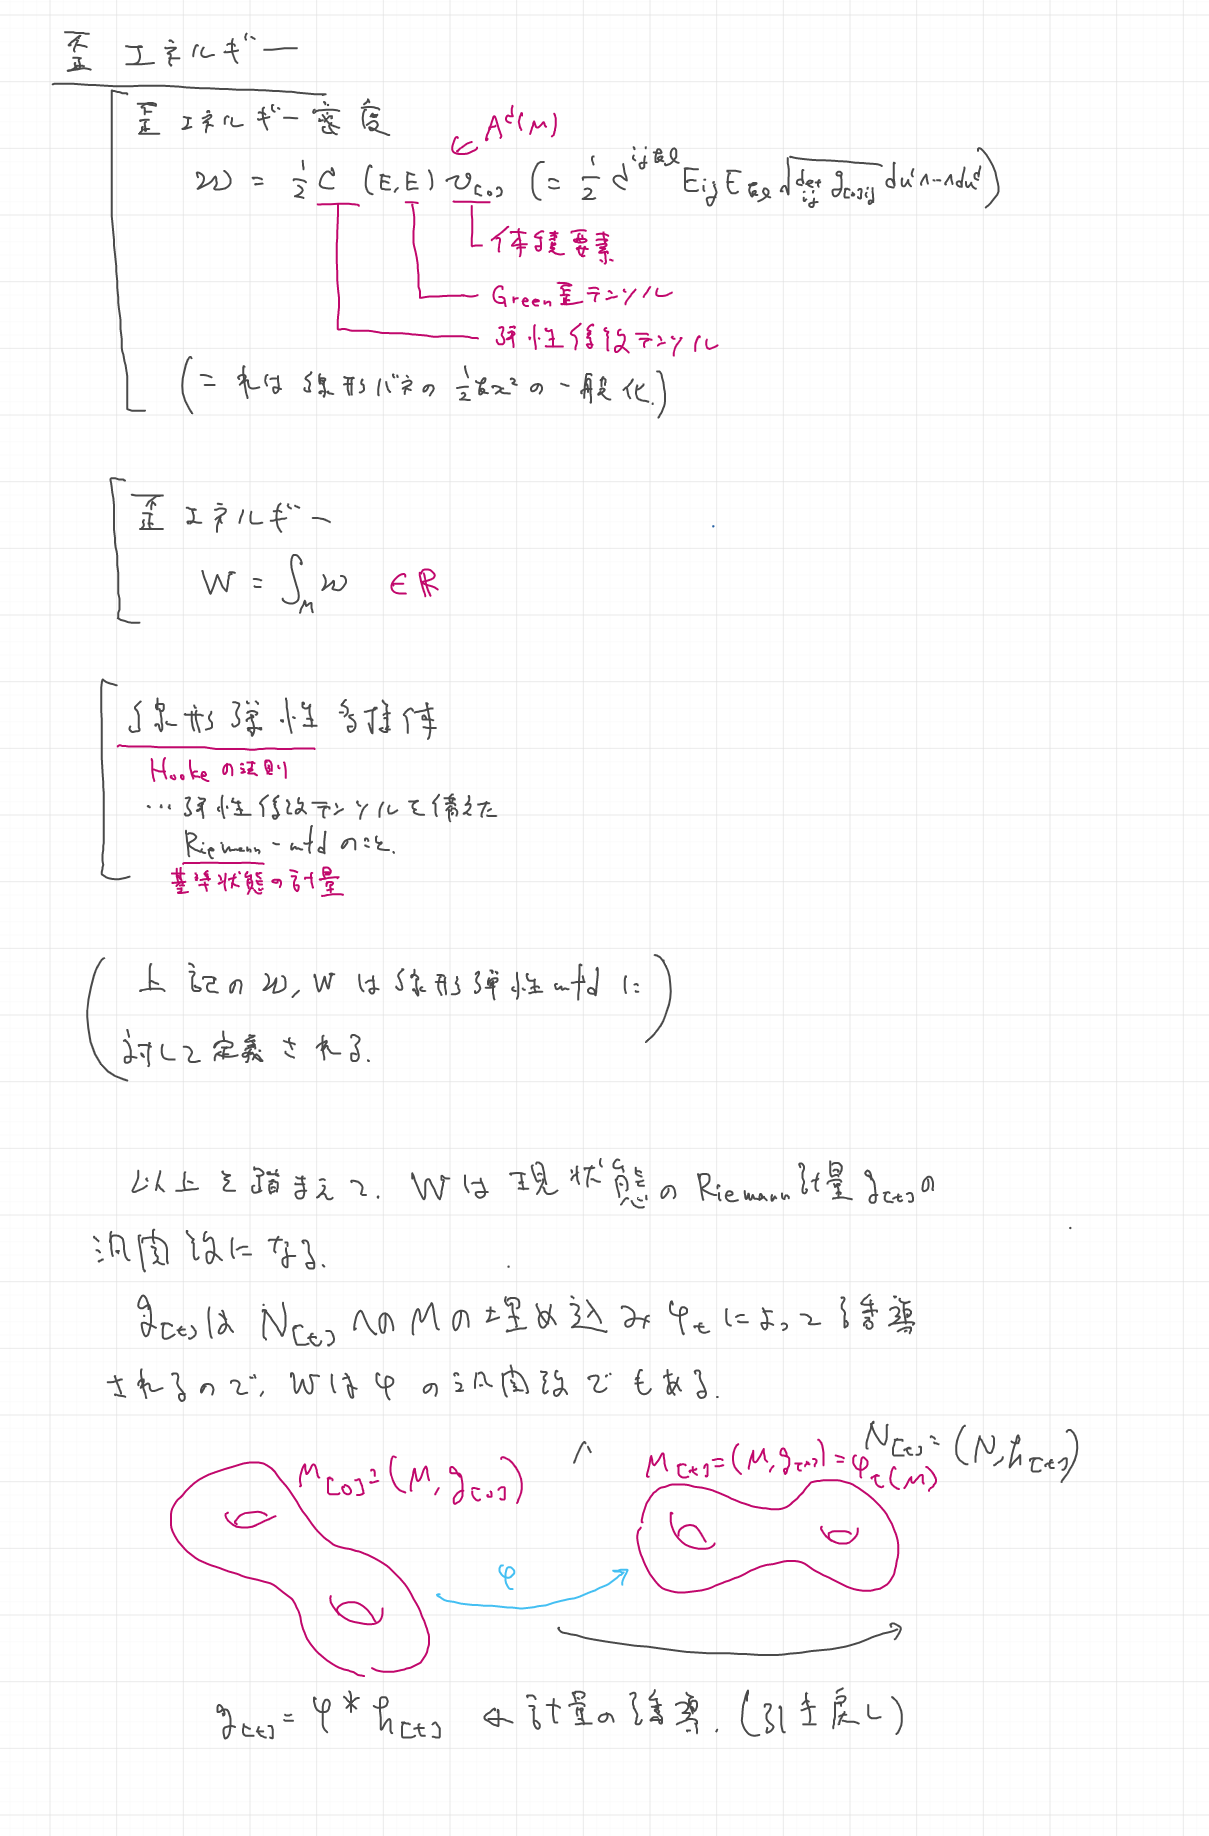 歪エネルギー
歪エネルギー密度
∈ A^d(M)
w = 1/2 C (E, E) v_[0] (= 1/2 C^{ijkl} E_{ij} E_{kl} √(det_{ij} g_{[0]ij}) du^1∧…∧du^d)
体積要素
Green歪テンソル
弾性係数テンソル
(これは線形バネの 1/2 kx² の一般化.)
歪エネルギー
W = ∫_M w ∈ ℝ
線形弾性多様体
Hookeの法則
… 弾性係数テンソルを備えた
Riemann-mfd のこと.
基準状態の計量
(上記の w, W は線形弾性mfd に
対して定義される.)
以上を踏まえて. W は現状態の Riemann計量 g_[t] の
汎関数になる.
g_[t] は N_[t] への M の埋め込み φ_t によって誘導
されるので, W は φ の汎関数でもある.
N_[t] = (N, h_[t])
M_[0] = (M, g_[0])
M_[t] = (M, g_[t]) = φ_t(M)
φ
g_[t] = φ* h_[t] ← 計量の誘導. (引き戻し)